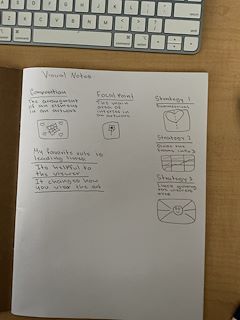 Visual Notes
Composition
The arrangement
of an elements
in an artwork
Focal Point
The main
area of
interest in
an artwork
Strategy 1
Symmetrical
Strategy 2
Strategy 3
My favorite rule is
leading lines
Its helpful to
the viewer
It changes how
you view the art